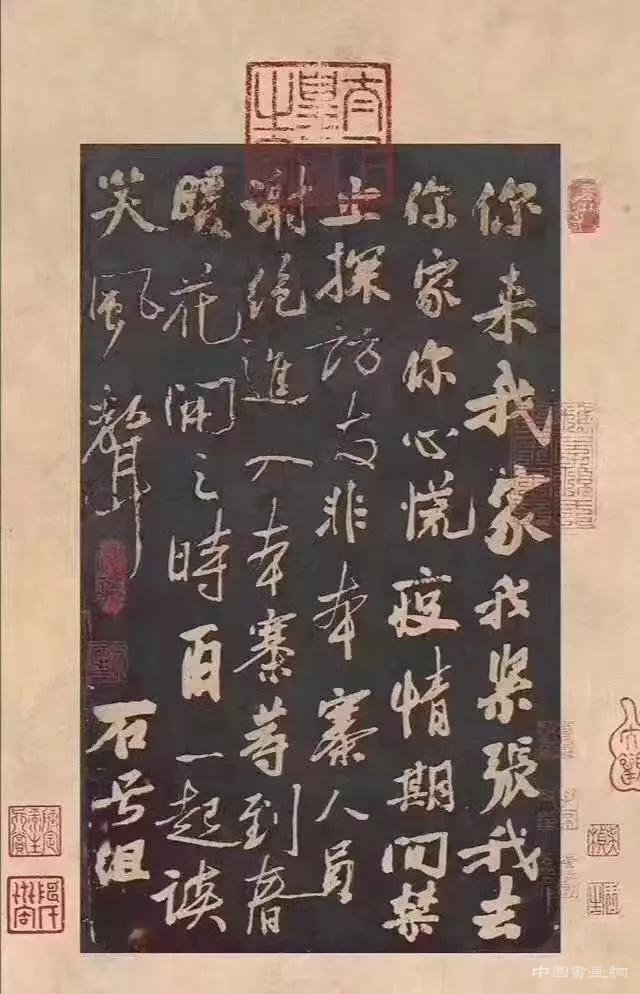 你来我家我紧張我去
你家你心慌疫情期间禁
止探訪友非本寨人員
谢绝進入本寨等到春
暖花開之時百一起談
笑風聲
石号组
中国書画網